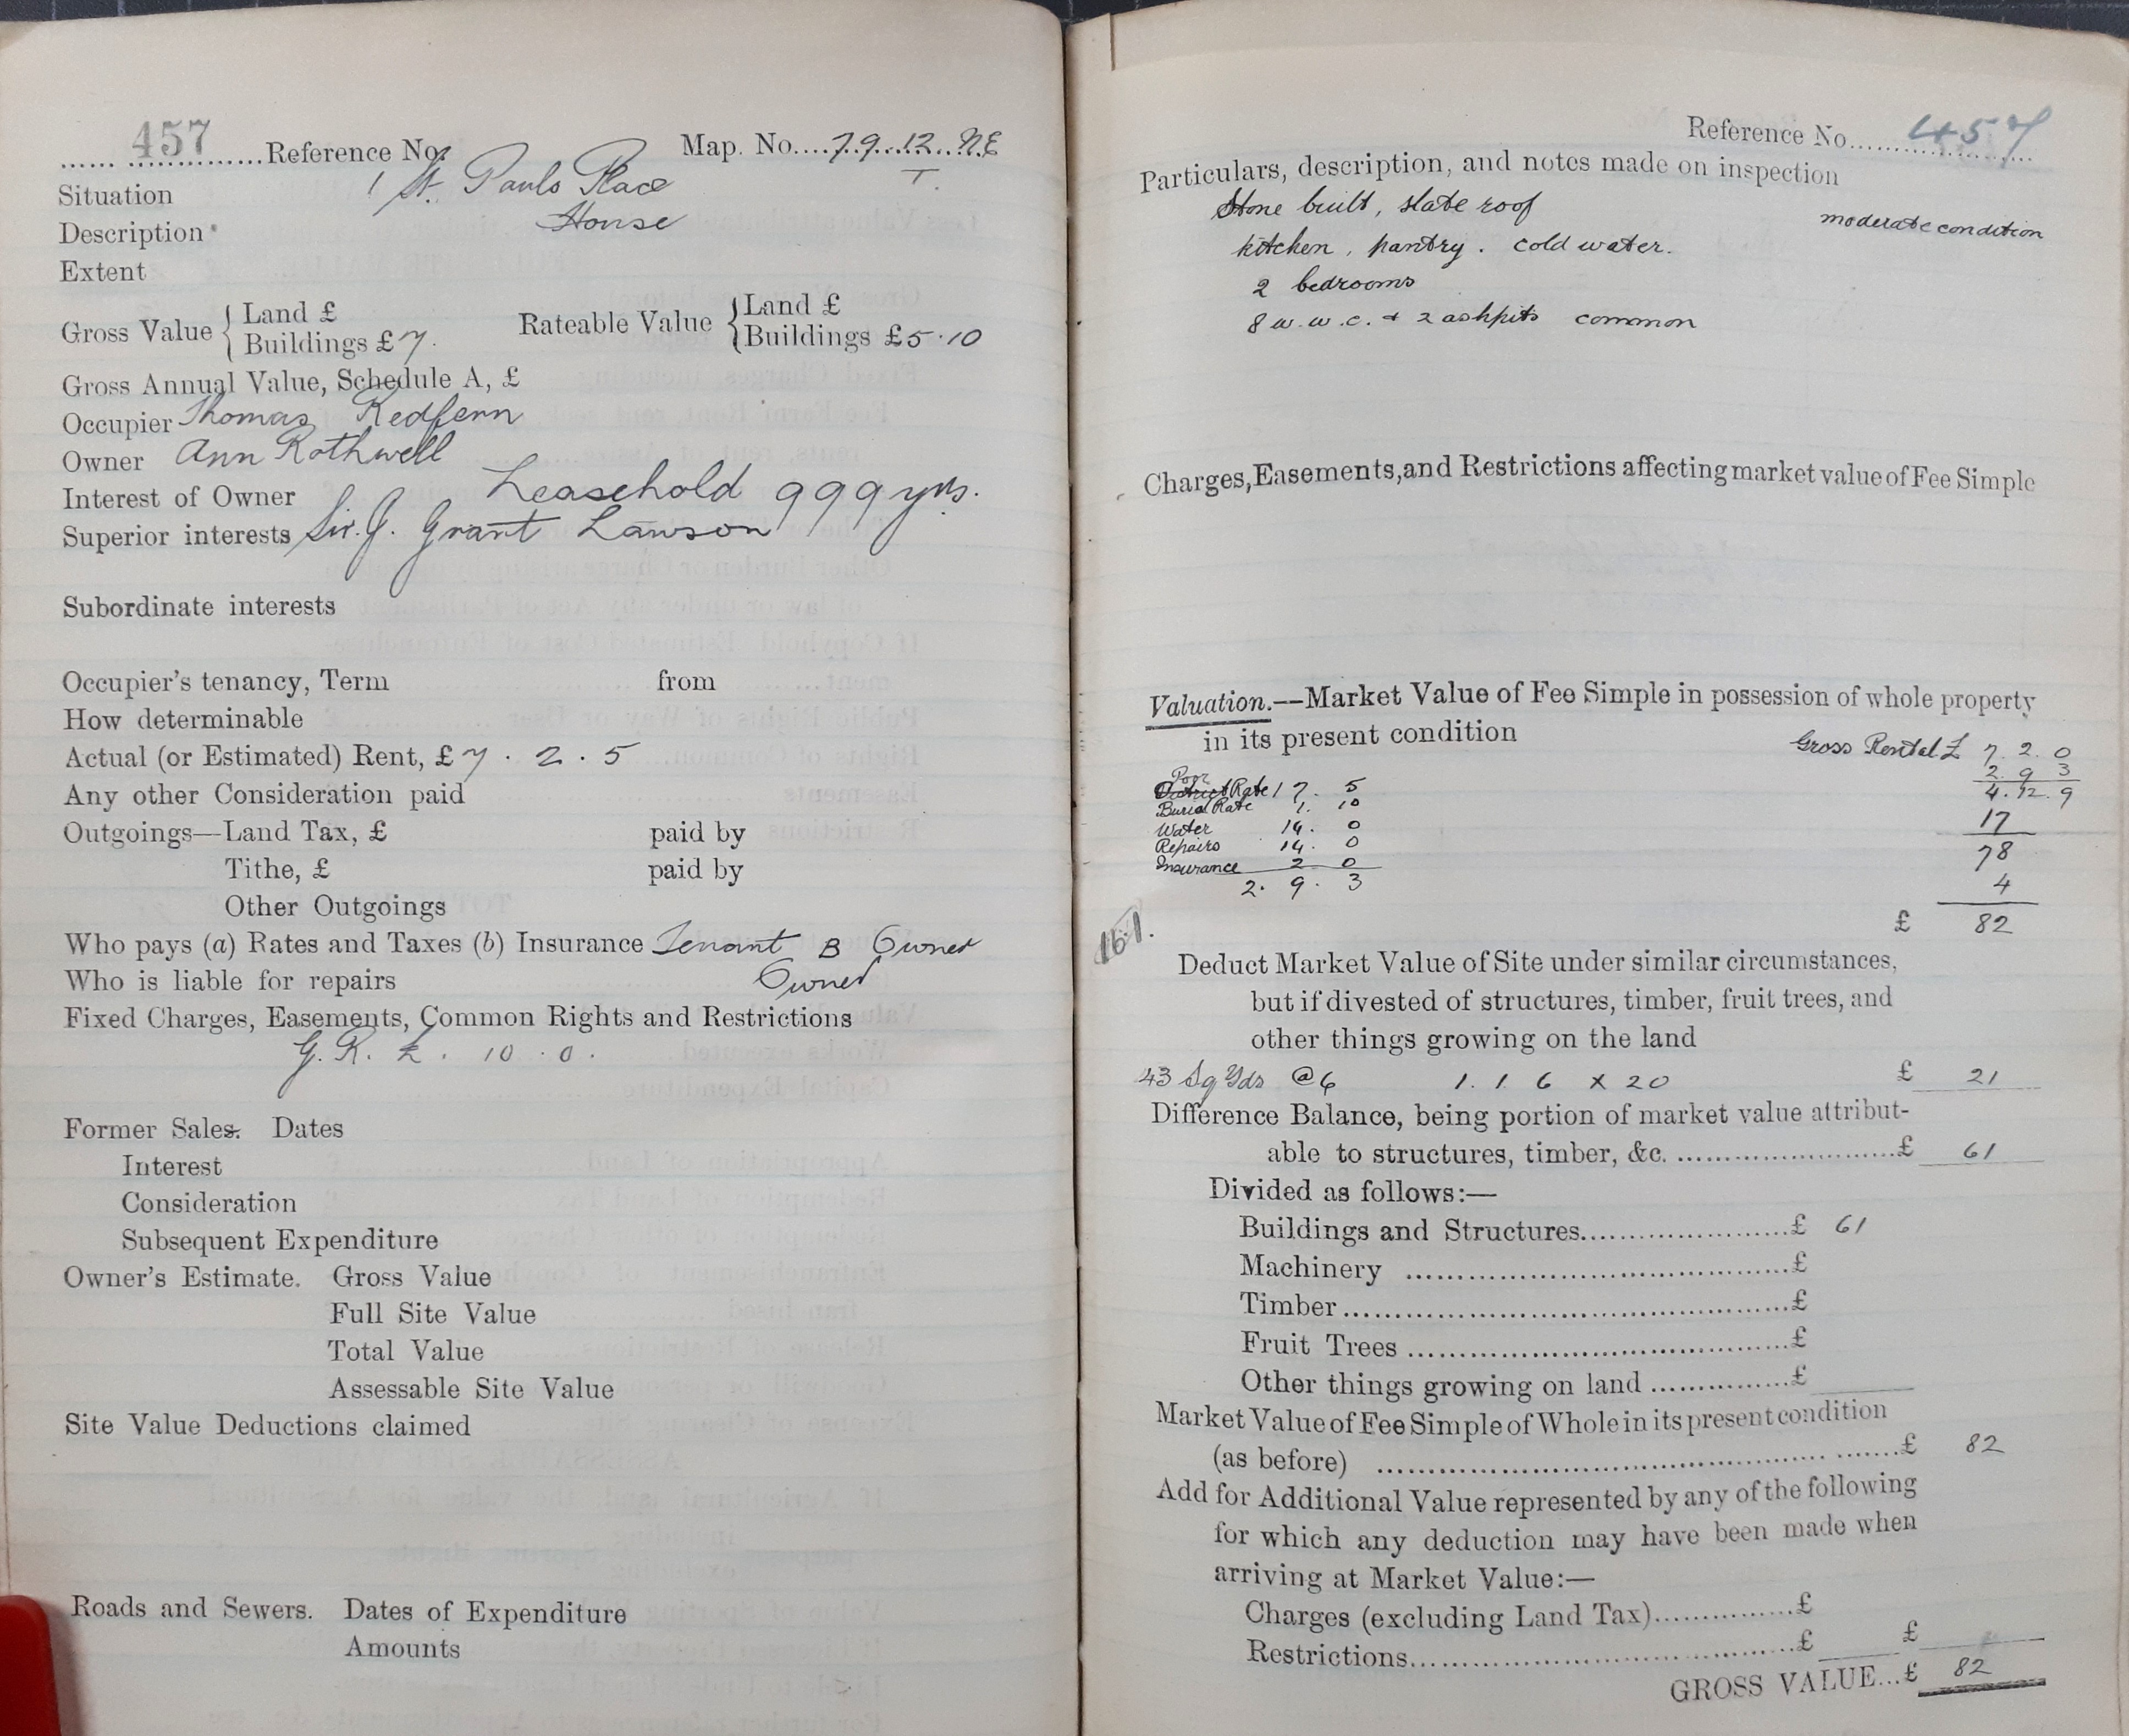 457 Reference No. Map. No. 79.12. N.E
T.
Situation 1 St. Pauls Place
Description House
Extent
Gross Value { Land £ Rateable Value { Land £
Buildings £7. Buildings £5.10
Gross Annual Value, Schedule A, £
Occupier Thomas Redfern
Owner Ann Rothwell
Interest of Owner Leasehold 999 yrs.
Superior interests Sir. J. Grant Lawson
Subordinate interests
Occupier's tenancy, Term from
How determinable
Actual (or Estimated) Rent, £7.2.5
Any other Consideration paid
Outgoings—Land Tax, £ paid by
Tithe, £ paid by
Other Outgoings
Who pays (a) Rates and Taxes (b) Insurance Tenant B Owner
Who is liable for repairs Owner
Fixed Charges, Easements, Common Rights and Restrictions
G. R. £. 10.0.
Former Sales. Dates
Interest
Consideration
Subsequent Expenditure
Owner's Estimate. Gross Value
Full Site Value
Total Value
Assessable Site Value
Site Value Deductions claimed
Roads and Sewers. Dates of Expenditure
Amounts
Reference No. 457
Particulars, description, and notes made on inspection
Stone built, slate roof moderate condition
kitchen, pantry. cold water.
2 bedrooms
8 w.w.c. + 2 ashpits common
Charges, Easements, and Restrictions affecting market value of Fee Simple
Valuation.—Market Value of Fee Simple in possession of whole property
in its present condition
Gross Rental £ 7. 2. 0
2. 9 3
4. 12. 9
17
78
4
£ 82
Poor
District Rate 17. 5
Burial Rate 1. 10
Water 14. 0
Repairs 14. 0
Insurance 2 0
2. 9. 3
161.
Deduct Market Value of Site under similar circumstances,
but if divested of structures, timber, fruit trees, and
other things growing on the land
43 Sq Yds @6 1. 1. 6 x 20 £ 21
Difference Balance, being portion of market value attribut-
able to structures, timber, &c. £ 61
Divided as follows:—
Buildings and Structures £ 61
Machinery £
Timber £
Fruit Trees £
Other things growing on land £
Market Value of Fee Simple of Whole in its present condition
(as before) £ 82
Add for Additional Value represented by any of the following
for which any deduction may have been made when
arriving at Market Value:—
Charges (excluding Land Tax) £
Restrictions £ £
GROSS VALUE...£ 82